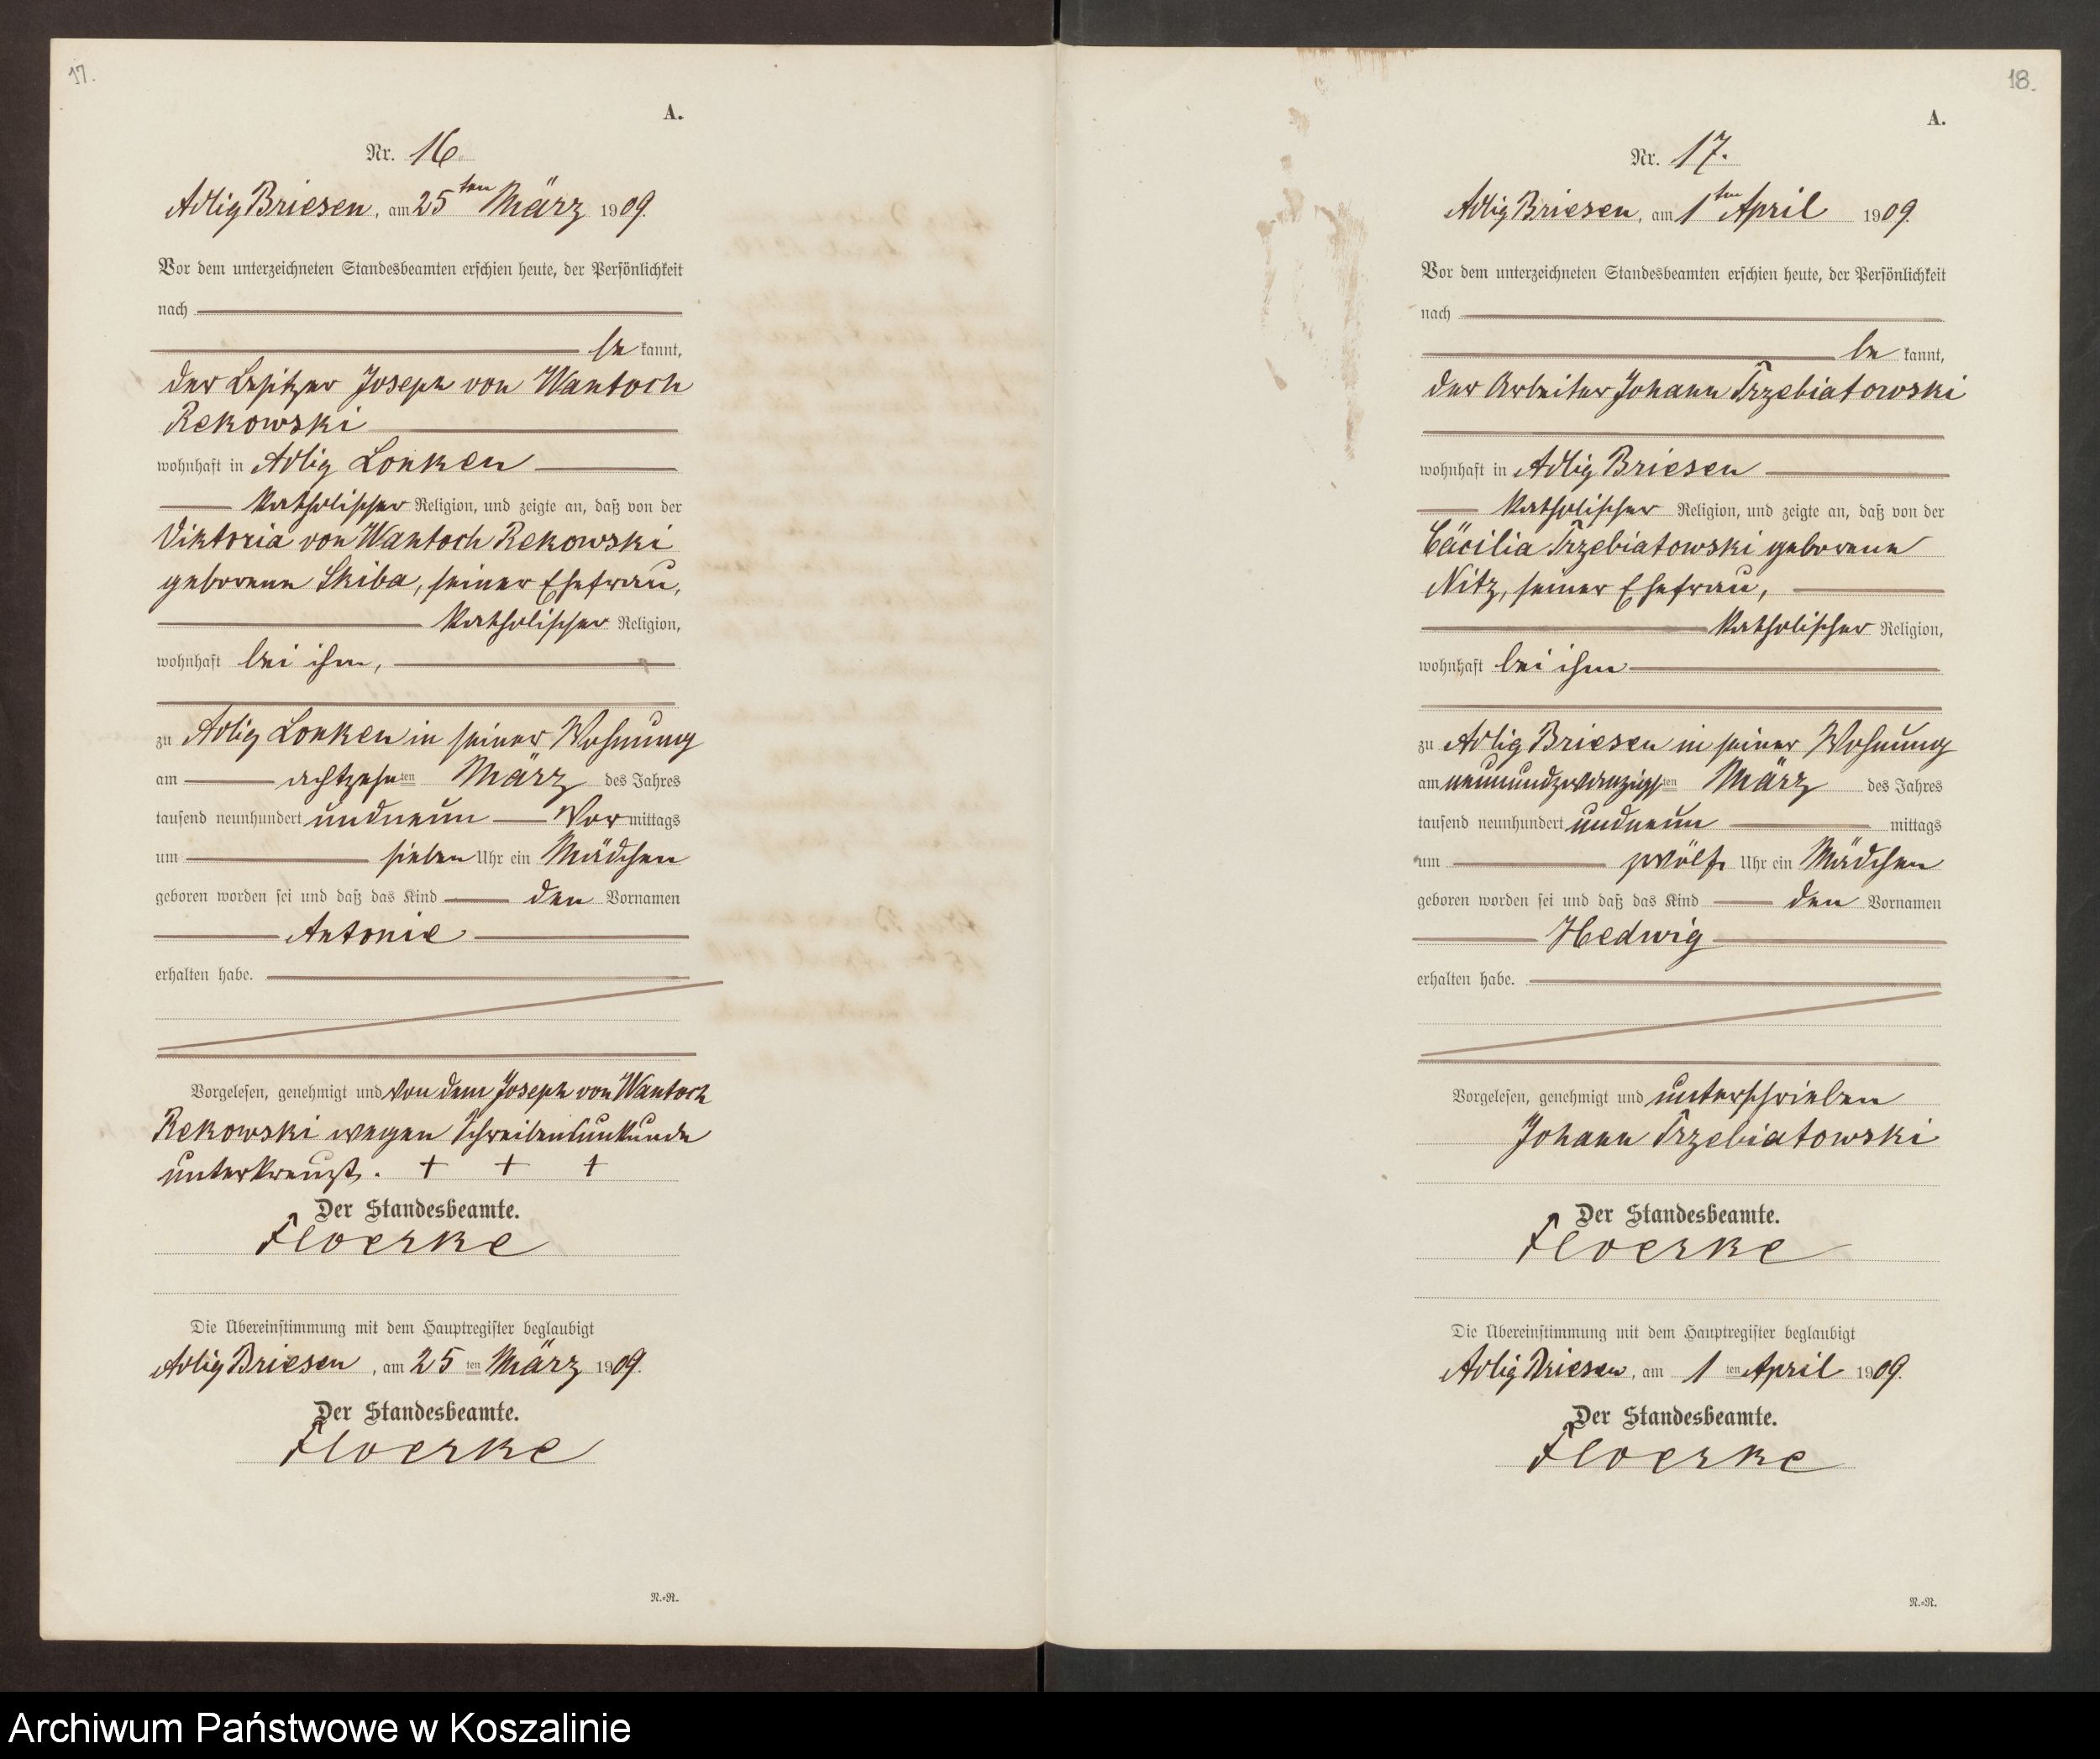 17.
A.
Nr. 16.
Adlig Briesen, am 25ten März 1909.
Vor dem unterzeichneten Standesbeamten erschien heute, der Persönlichkeit
nach
be kannt,
der Besitzer Joseph von Wantoch
Rekowski
wohnhaft in Adlig Lonken
katholischer Religion, und zeigte an, daß von der
Viktoria von Wantoch Rekowski
geborenen Skiba, seiner Ehefrau,
katholischer Religion,
wohnhaft bei ihm,
zu Adlig Lonken in seiner Wohnung
am achtzehnten März des Jahres
tausend neunhundert undneun Vor mittags
um sieben Uhr ein Mädchen
geboren worden sei und daß das Kind den Vornamen
Antonie
erhalten habe.
Vorgelesen, genehmigt und von dem Joseph von Wantoch
Rekowski wegen Schreibensunkunde
unterkreuzt. + + +
Der Standesbeamte.
Floerke
Die Übereinstimmung mit dem Hauptregister beglaubigt
Adlig Briesen, am 25 ten März 1909.
Der Standesbeamte.
Floerke
N.=R.
18.
A.
Nr. 17.
Adlig Briesen, am 1ten April 1909.
Vor dem unterzeichneten Standesbeamten erschien heute, der Persönlichkeit
nach
be kannt,
der Arbeiter Johann Trzebiatowski
wohnhaft in Adlig Briesen
katholischer Religion, und zeigte an, daß von der
Cäcilia Trzebiatowski geborenen
Nitz, seiner Ehefrau,
katholischer Religion,
wohnhaft bei ihm
zu Adlig Briesen in seiner Wohnung
am neunundzwanzigsten März des Jahres
tausend neunhundert undneun mittags
um zwölf Uhr ein Mädchen
geboren worden sei und daß das Kind den Vornamen
Hedwig
erhalten habe.
Vorgelesen, genehmigt und unterschrieben
Johann Trzebiatowski
Der Standesbeamte.
Floerke
Die Übereinstimmung mit dem Hauptregister beglaubigt
Adlig Briesen, am 1 ten April 1909.
Der Standesbeamte.
Floerke
N.=R.
Archiwum Państwowe w Koszalinie